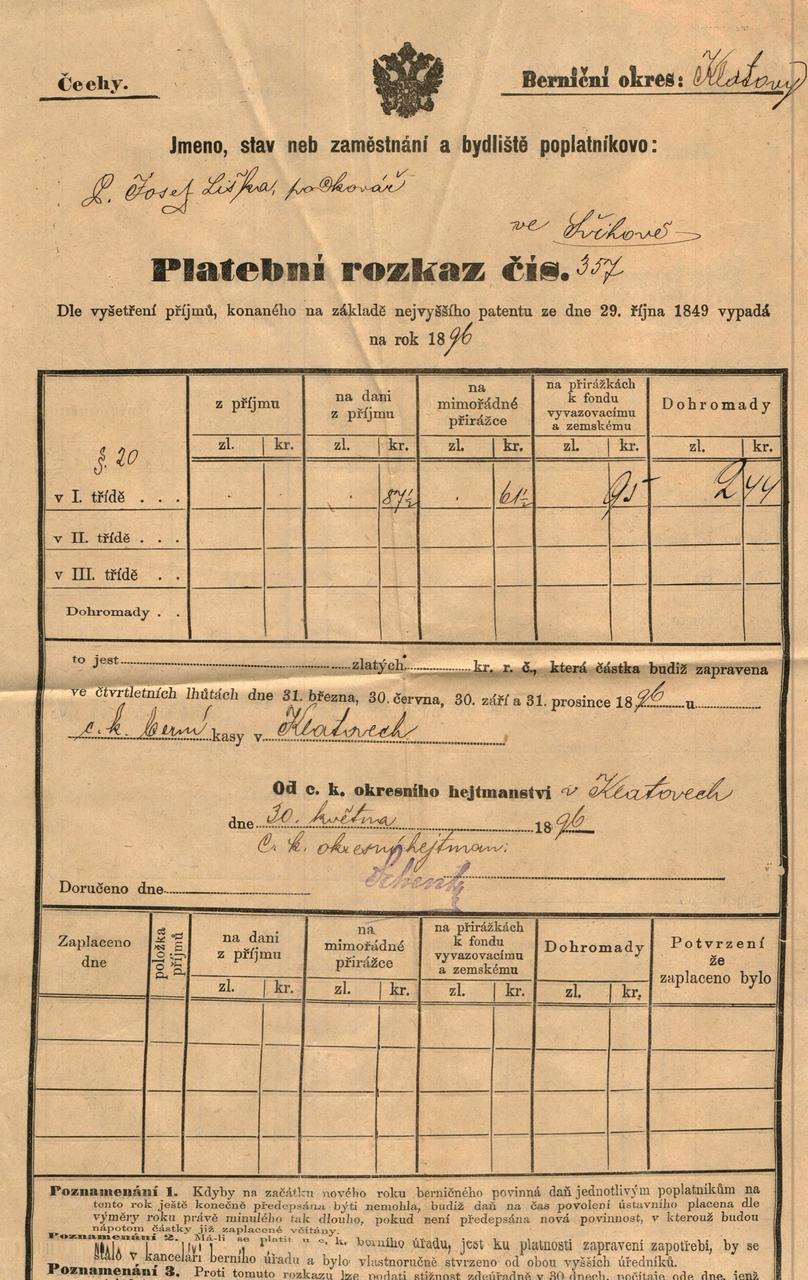 Čechy.
Berniční okres: Klatovy
Jmeno, stav neb zaměstnání a bydliště poplatníkovo:
P. Josef Liška, podkovář
ve Švihově
Platební rozkaz čís. 357
Dle vyšetření příjmů, konaného na základě nejvyššího patentu ze dne 29. října 1849 vypadá
na rok 1896
z příjmu
na dani z příjmu
na mimořádné přirážce
na přirážkách k fondu vyvazovacímu a zemskému
Dohromady
zl. kr. zl. kr. zl. kr. zl. kr. zl. kr.
§. 20
v I. třídě . . . 87½ 61½ 95 2 44
v II. třídě . . .
v III. třídě . .
Dohromady . .
to jest zlatých kr. r. č., která částka budiž zapravena
ve čtvrtletních lhůtách dne 31. března, 30. června, 30. září a 31. prosince 1896 u
c. k. berní kasy v Klatovech
Od c. k. okresního hejtmanství v Klatovech
dne 30. května 1896
C. k. okresný hejtman:
Doručeno dne
Zaplaceno dne
položka příjmů
na dani z příjmu
na mimořádné přirážce
na přirážkách k fondu vyvazovacímu a zemskému
Dohromady
Potvrzení že zaplaceno bylo
zl. kr. zl. kr. zl. kr. zl. kr.
Poznamenání 1. Kdyby na začátku nového roku berničného povinná daň jednotlivým poplatníkům na
tento rok ještě konečně předepsána býti nemohla, budiž daň na čas povolení ústavního placena dle
výměry roku právě minulého tak dlouho, pokud není předepsána nová povinnost, v kterouž budou
nápotom částky již zaplacené včítány.
Poznamenání 2. Má-li se platit u c. k. berního úřadu, jest ku platnosti zapravení zapotřebí, by se
stalo v kanceláři berního úřadu a bylo vlastnoručně stvrzeno od obou vyšších úředníků.
Poznamenání 3. Proti tomuto rozkazu lze podati stížnost zdeúřadně v 30 dnech, počítaje ode dne, jenž